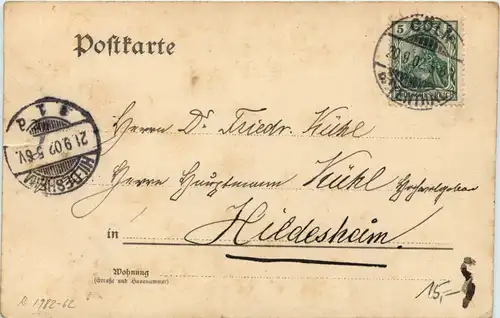 Postkarte
5 CÖLN
20.9.02
HILDESHEIM
21.9.02 5-6V.
1 a
Herrn Dr. Friedr. Kühl
Herrn Hauptmann Kühl Hochwolgeboren
in Hildesheim
Wohnung
(Straße und Hausnummer)
15,-
1982-62